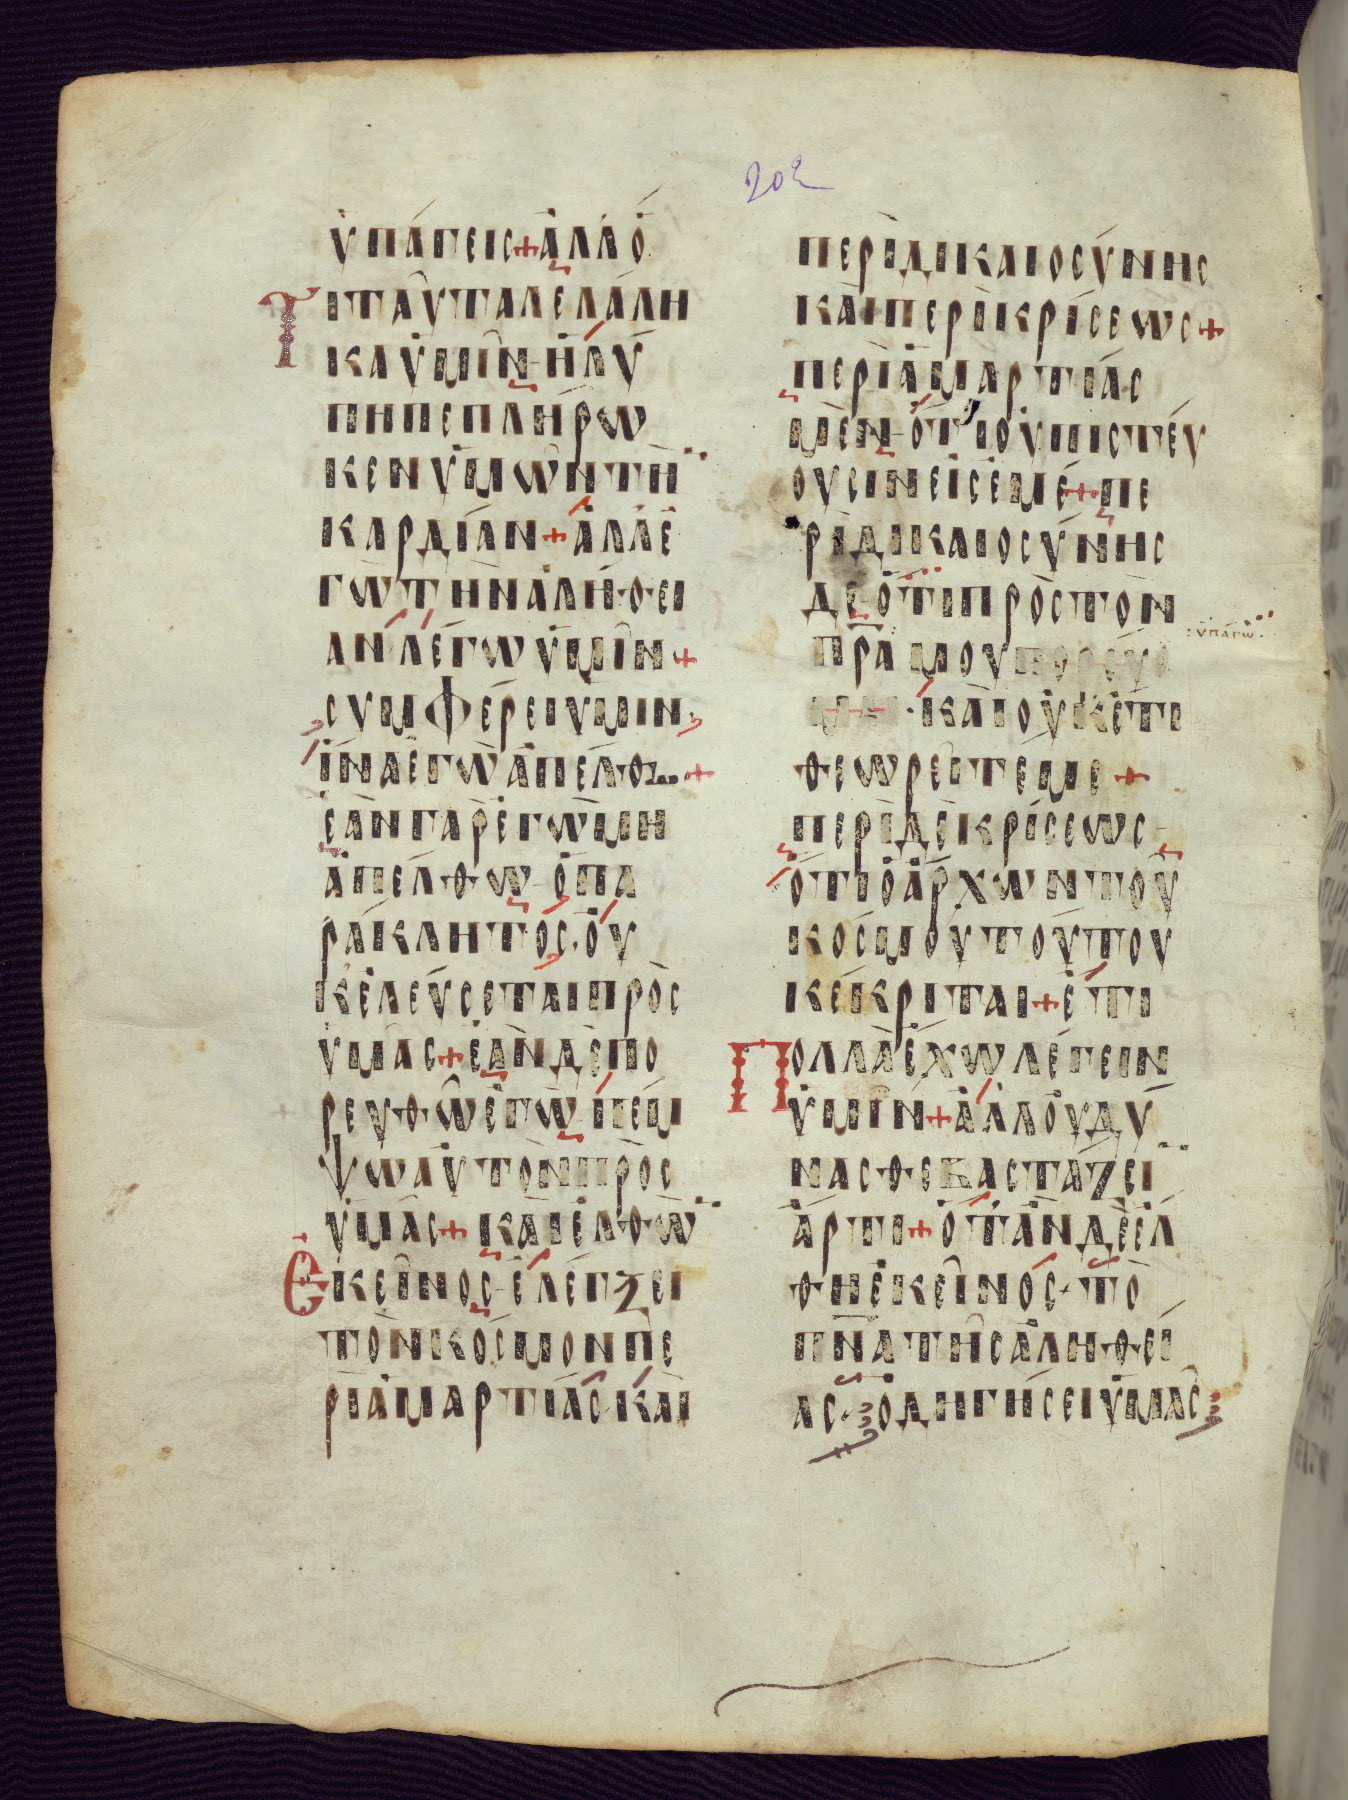 202
ὑπάγεις + ἀλλ' ὅ
Τι ταῦτα λελάλη
κα ὑμῖν · ἡ λύ
πη πεπλήρω
κεν ὑμῶν τὴ
καρδίαν + ἀλλ' ἐ
γὼ τὴν ἀλήθει
αν λέγω ὑμῖν +
συμφέρει ὑμῖν,
ἵνα ἐγὼ ἀπέλθω +
ἐὰν γὰρ ἐγὼ μὴ
ἀπέλθω · ὁ πα
ράκλητος · οὐ
κ ἐλεύσεται πρὸς
ὑμας + ἐὰν δὲ πο
ρευθῶ ἐγὼ, πέμ
ψω αὐτὸν πρὸς
ὑμᾶς + καὶ ἐλθὼ
Ἐκεῖνος · ἐλέγξει
τὸν κόσμον πε
ρὶ ἁμαρτίας · καὶ
περὶ δικαιοσύνης
καὶ περὶ κρίσεως +
περὶ ἁμαρτίας
μὲν · ὅτι οὐ πιστεύ
ουσιν εἰς ἐμέ + πε
ρὶ δικαιοσύνης
δὲ · ὅτι πρὸς τὸν
πρα μου πορεύο
: ὑπάγω :
· καὶ οὐκέτι
θεωρεῖτε με +
περὶ δὲ κρίσεως ·
ὅτι ὁ ἄρχων τοῦ
κόσμου τούτου
κέκριται + ἔτι
Πολλὰ ἔχω λέγειν
ὑμῖν + ἀλλ' οὐ δύ
νασθε βαστάζει
ἄρτι + ὅταν δὲ ἔλ
θη ἐκεῖνος · τὸ
πνα τῆς ἀληθεί
ας · ὁδηγήσει ὑμᾶς